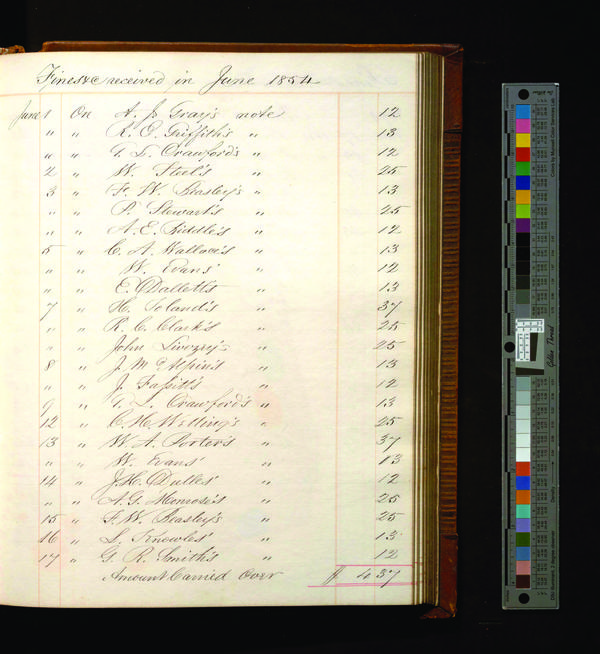 Fines &c received in June 1854
June 1 On A. J. Gray's note 12
" " R. O. Griffith's " 13
" " T. L. Crawford's " 12
2 " W. Steel's " 25
3 " F. W. Beasley's " 13
" " P. Stewart's " 25
" " A. E. Riddle's " 12
5 " C. A. Wallove's " 13
" " W. Evans' " 12
" " E. O'Dallett's " 13
7 " H. Toland's " 37
" " R. C. Clark's " 25
" " John Livezey's " 25
8 " J. McAlpin's " 13
" " J. " 12
9 " T. L. Crawford's " 13
12 " C. H. Welling's " 25
13 " W. A. Porter's " 37
" " W. Evans' " 13
14 " J. H. " 12
" " A. G. Monrose's " 25
15 " F. W. Beasley's " 25
16 " S. Knowles' " 13
17 " G. R. Smith's " 12
Amount Carried Over $ 4 37
Golden Thread